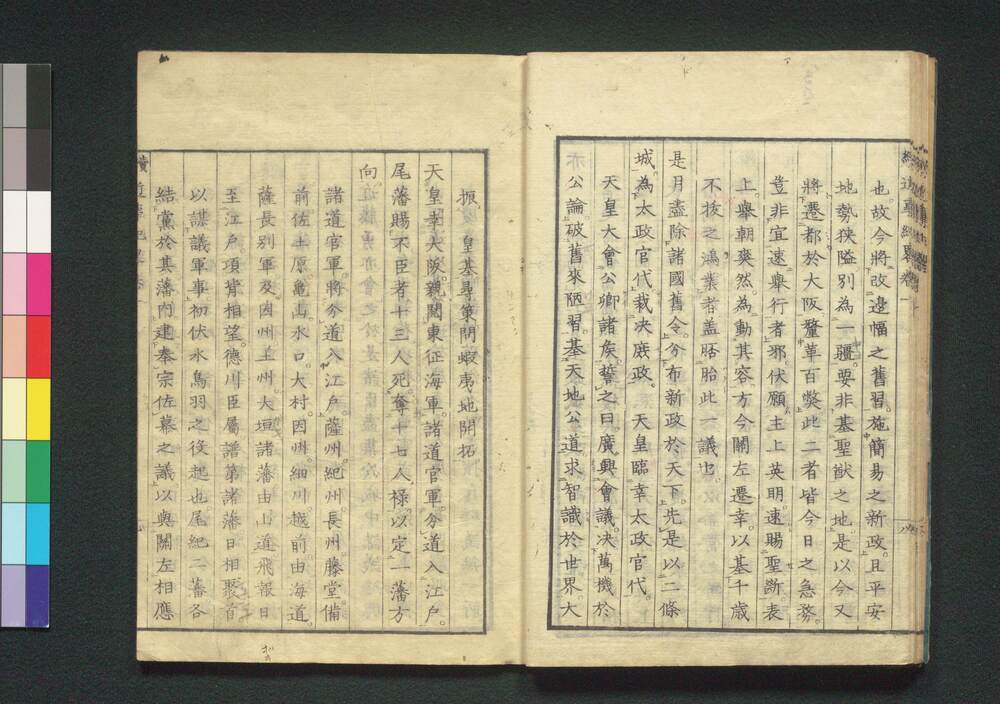 也。故今將改邊幅之舊習。施簡易之新政。且平安
地勢狹隘別為一疆。要非基聖猷之地。是以今又
將遷都於大阪釐革百獘此二者皆今日之急務。
豈非宜速舉行者邪。伏願主上英明。速賜聖斷。表
上。舉朝爽然。為動其容方今關左遷幸。以基千歲
不拔之鴻業者盖胚胎此一議也。
是月盡除諸國舊令。分布新政於天下。先是以二條
城。為太政官代裁决庶政。 天皇臨幸太政官代。
天皇大會公卿諸矦。誓之曰。廣興會議。决萬機於
亦公論破舊來陋習。基天地公道。求智識於世界大
振 皇基。尋策問蝦夷地開拓
天皇幸大阪。親閱東征海軍。諸道官軍。分道入江戶。
尾藩賜不臣者十三人死。奪十七人祿。以定一藩方
向。
諸道官軍。將分道入江戶。薩州紀州長州藤堂備
前佐土原龜山水口。大村。因州。細川越前由海道。
薩長別軍及因州土州。大垣諸藩由山道飛報日
至江戶項背相望。德川臣屬譜第諸藩日相聚首。
以謀議軍事。初伏水鳥羽之役起也。尾紀二藩各
結黨於其藩內建奉宗佐幕之議以與關左相應